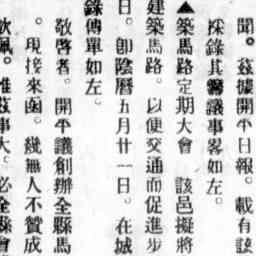 聞。茲據開平日報。載有該
採錄其籌議事畧如左。
▲築馬路定期大會　該邑擬將
建築馬路。以便交通而促進步
日。卽陰曆五月廿一日。在城
錄傳單如左。
敬啓者。開平議創辦全縣馬
。現接來函。幾無人不贊成
欽佩。惟茲事大。必全縣會